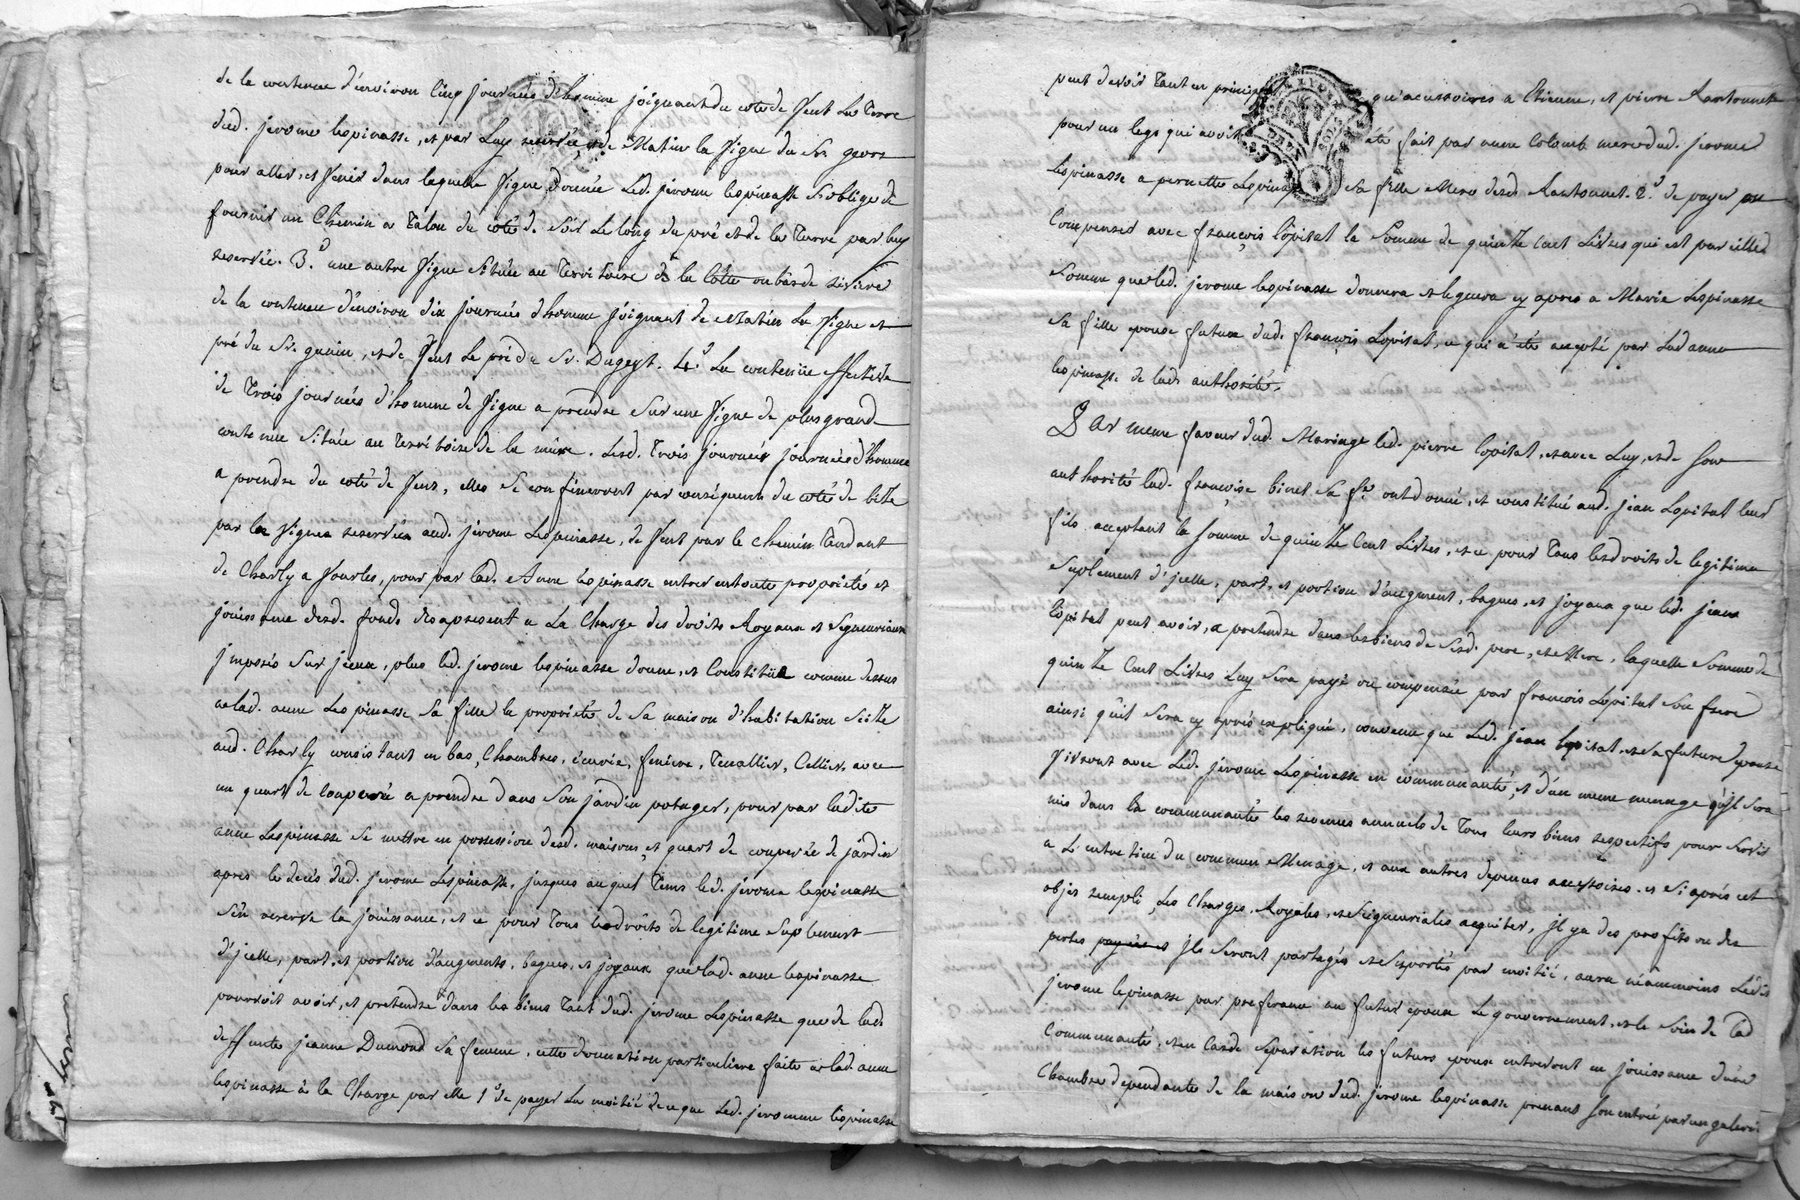 de la contenue d'environ cinq journées d'homme joignant du coté de Vent les Terre
dud. jerome Lespinasse, et par Luy reservée, de Matin la Vigne du Sr.
pour aller, et Venir dans laquelle Vigne donnée Led. jerome lespinasse s'oblige de
fournir un Chemin a Talon du coté de Soir Le long du pré et de la Terre par luy
reservée. 3.° une autre Vigne Située au Territoire de la Cotte ou bas de
de la contenue d'environ dix journées d'homme joignant de Matin La Vigne et
pré du Sr. guerin, et de Vent Le pré du Sr. Dugeyt. 4.° La contenüe effective
de Trois journées d'homme de Vigne a prendre Sur une Vigne de plus grand
contenue Située au Territoire de la mure. Lesd. Trois journées journées d'homme
a prendre du coté de Vent, elles Se confineront par consequent du coté de bize
par la Vigne reservée aud. jerome Lespinasse, de Vent par le Chemin Tendant
de Charly a Vourles, pour par lad. Anne lespinasse entrer en toute proprieté et
jouissance desd. fonds des apresent a La Charge des droits Royaux et Seigneuriaux
jmposés Sur jceux, plus led. jerome lespinasse donne, et Constitüe comme dessus
a lad. anne Lespinasse Sa fille la proprieté de Sa maison d'habitation Scize
aud. Charly consistant en bas, Chambres, écurie, feniere, Tenallier, Cellier, avec
un quart de couperée a prendre dans Son jardin potager, pour par ladite
anne Lespinasse Se mettre en possession desd. maisons, et quart de couperée de jardin
apres le decés dud. jerome Lespinasse, jusques auquel Tems led. jerome lespinasse
S'en reserve la jouissance, et ce pour Tous les droits de legitime Suplement
d'jcelle, part, et portion d'augments, bagues, et joyaux que lad. anne lespinasse
pourroit avoir, et pretendre dans les biens Tant dud. jerome Lespinasse que de lad.
deffunte jeanne Dumond Sa femme, cette donnation particuliere faite a lad. anne
lespinasse à la Charge par elle 1.° de payer La moitié de ce que Led. jerome Lespinasse
peut devoir Tant en principal qu'accessoires a Etienne, et pierre
pour un legs qui avoit été fait par anne Colomb mere dud. jerome
Lespinasse a pernette Lespinasse Sa fille Mere desd. 2.° de payer ou
compenser avec françois Lopital la Somme de quinze Cent Livres qui est pareille
Somme que led. jerome lespinasse donnera et leguera cy apres a Marie Lespinasse
Sa fille epouse future dud. françois Lopital, ce qui a été accepté par Lad. anne
lespinasse de lad. authorité.
Par meme faveur dud. Mariage led. pierre lopital, et avec Luy, et de Son
authorité lad. françoise binet Sa fe. ont donné, et constitué aud. jean Lopital leur
fils acceptant la Somme de quinze Cent Livres, et ce pour Tous les droits de legitime
Suplement d'jcelle, part, et portion d'augment, bagues, et joyaux que led. jean
Lopital peut avoir, a pretendre dans les biens de Sesd. pere, et Mere, laquelle Somme de
quinze Cent Livres Luy Sera payé ou compensée par francois Lopital Son frere
ainsi qu'il Sera cy après expliqué, convenu que Led. jean Lopital, et Sa future Epouse
Vivront avec Led. jerome Lespinasse en communauté, et d'un meme menage qu'jl Sera
mis dans la communauté les revenus annuels de Tous leurs biens respectifs pour Servir
a L'entretien du commun Menage, et aux autres depenses accessoires, et Si après cet
objet rempli, Les Charges, Royales, et Seigneuriales acquitées, jl y a des profits ou des
pertes jls Seront partagés et Suportés par moitié, aura néammoins Ledit
jerome lespinasse par preferance au futur epoux Le gouvernement, et le Soin de lad.
communauté, et en Cas de Separation les futurs epoux entreront en jouissance d'une
Chambre dependante de la maison dud. jerome lespinasse prenant Son entrée par un galerie